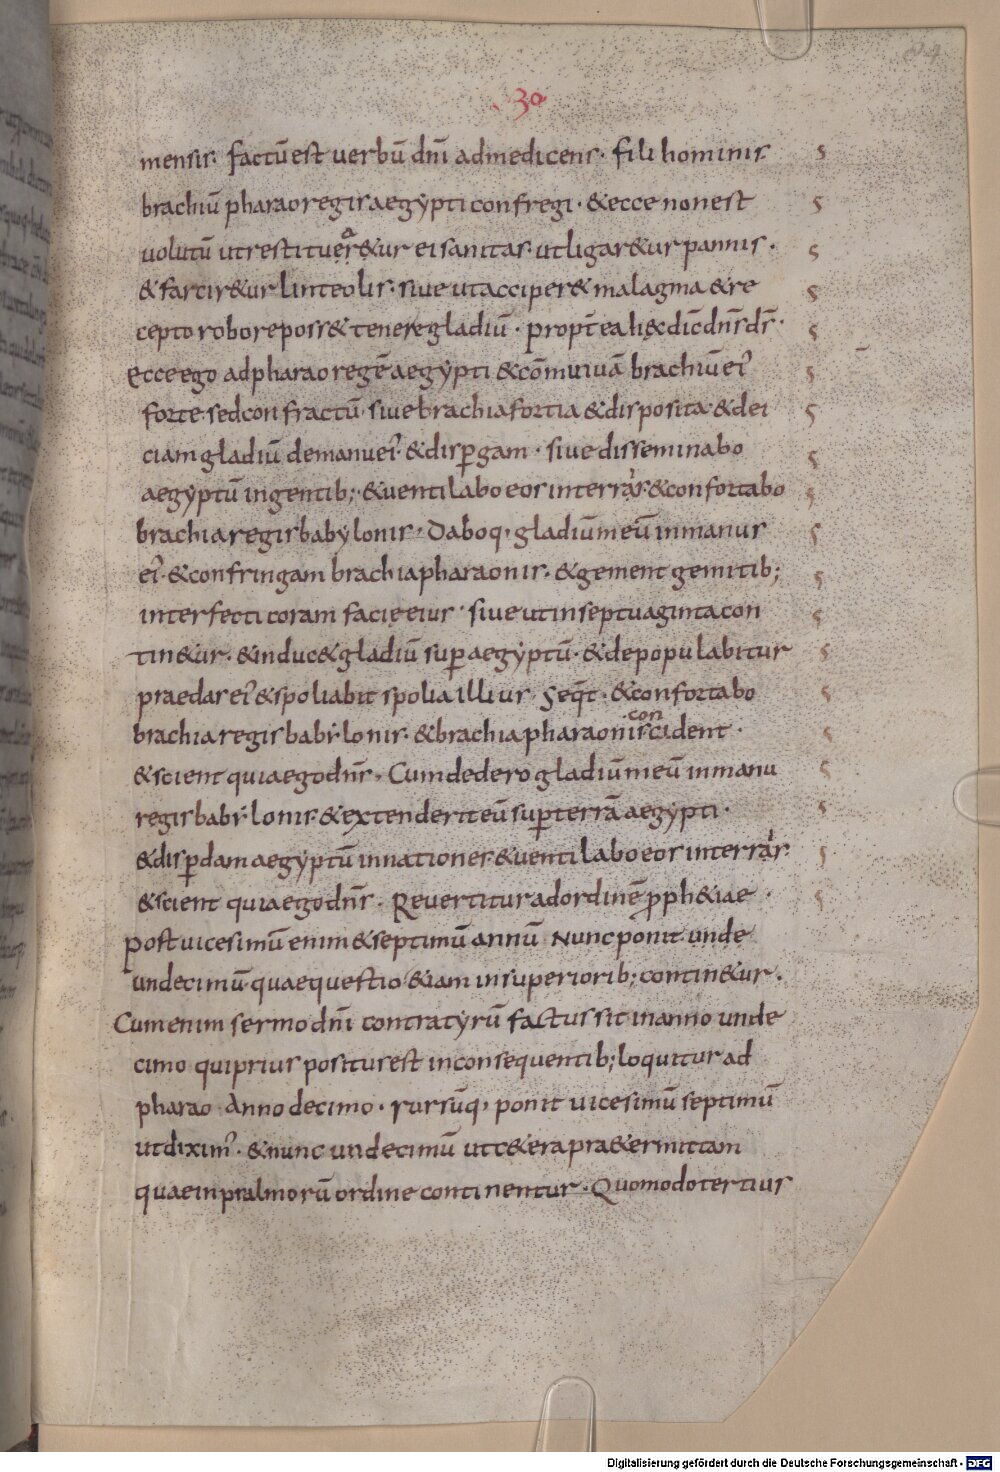 84
30
mensis. factū est uerbū dn̄i ad me dicens. fili hominis
brachiū pharao regis aegypti confregi. & ecce non est
uolutū ut restituer&ur ei sanitas. ut ligar&ur pannis.
& farcir&ur linteolis. siue ut acciper& malagma & re
cepto robore poss& tenere gladiū. propt̄ ea h&̨c dic̄ dn̄s ds̄.
Ecce ego ad pharao regē aegypti & cōminuā brachiū ei'
forte. sed confractū. siue brachia fortia & disposita. & dei
ciam gladiū de manu ei'. & disꝑgam. siue disseminabo
aegyptū in gentib; & uentilabo eos in terris. & confortabo
brachia regis babylonis. Daboq, gladiū meū in manus
ei'. & confringam brachia pharaonis. & gement gemitib;
interfecti coram facie eius. siue ut in septuaginta con
tin&ur. & induc& gladiū suꝑ aegyptū. & depopulabitur
praedas ei' & spoliabit spolia illius. Seq̄t. & confortabo
brachia regis babylonis. & brachia pharaonis concident.
& scient quia ego dn̄s. Cum dedero gladiū meū in manu
regis babylonis. & extenderit eū suꝑ terrā aegypti.
& disꝑdam aegyptū in nationes. & uentilabo eos in terras.
& scient quia ego dn̄s. Reuertitur ad ordinē proph&iae.
post uicesimū enim & septimū annū. Nunc ponit unde
undecimū. quae questio &iam in superiorib; contin&ur.
Cum enim sermo dn̄i contra tyrū factus sit in anno unde
cimo qui prius positus est in consequentib; loquitur ad
pharao. Anno decimo. rursūq, ponit uicesimū septimū
ut dixim'. & nunc undecimū ut c&era pra&ermittam
quae in psalmorū ordine continentur. Quomodo tertius
Digitalisierung gefördert durch die Deutsche Forschungsgemeinschaft - DFG